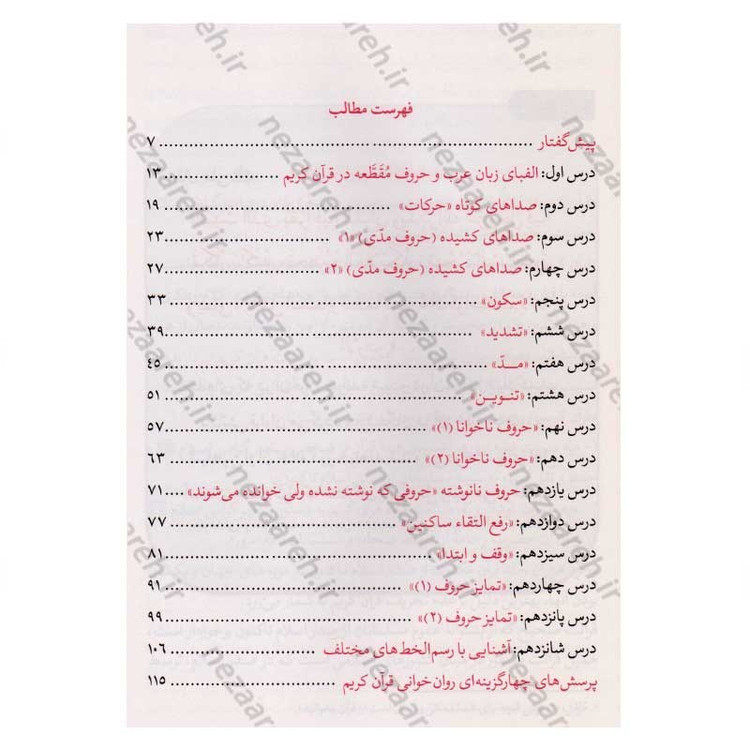 فهرست مطالب
پیش‌گفتار ........ ۷
درس اول: الفبای زبان عرب و حروف مُقَطَّعه در قرآن کریم ........ ۱۳
درس دوم: صداهای کوتاه «حرکات» ........ ۱۹
درس سوم: صداهای کشیده (حروف مدّی) «۱» ........ ۲۳
درس چهارم: صداهای کشیده (حروف مدّی) «۲» ........ ۲۷
درس پنجم: «سکون» ........ ۳۳
درس ششم: «تشدید» ........ ۳۹
درس هفتم: «مــدّ» ........ ۴۵
درس هشتم: «تنـویـن» ........ ۵۱
درس نهم: «حروف ناخوانا (۱)» ........ ۵۷
درس دهم: «حروف ناخوانا (۲)» ........ ۶۳
درس یازدهم: حروف نانوشته «حروفی که نوشته نشده ولی خوانده می‌شوند» .... ۷۱
درس دوازدهم: «رفع التقاء ساکنین» ........ ۷۷
درس سیزدهم: «وقف و ابتدا» ........ ۸۱
درس چهاردهم: «تمایز حروف (۱)» ........ ۹۱
درس پانزدهم: «تمایز حروف (۲)» ........ ۹۹
درس شانزدهم: آشنایی با رسم‌الخط‌های مختلف ........ ۱۰۶
پرسش‌های چهارگزینه‌ای روان‌خوانی قرآن کریم ........ ۱۱۵
nezaareh.ir